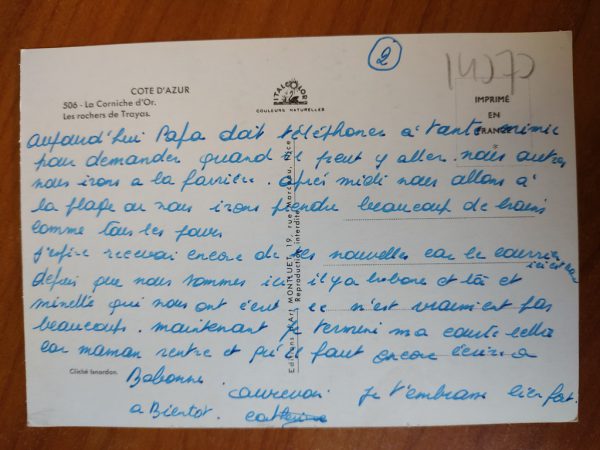 2
14070
COTE D'AZUR
506 - La Corniche d'Or.
Les rochers de Trayas.
ITALCOLOR
COULEURS NATURELLES
IMPRIMÉ
EN
FRANCE
aujourd'hui Papa doit téléphoner à tante mimie
pour demander quand il peut y aller. nous autres
nous irons a la après midi nous allons à
la plage ou nous irons prendre beaucoup de bains
comme tous les jours
j'espère recevoir encore de tes nouvelles car le courrier
ici
depuis que nous sommes ici il y a et et
minette qui nous ont écrit ce n'est vraiment pas
beaucoup. maintenant je termine ma carte
car maman rentre et qu'il faut encore écrire a
Babonne. aurevoir je t'embrasse bien fort.
a Bientot. catherine
Cliché Isnardon.
Editions d'Art MONTLUET, 19, rue Marceau, Nice
Reproduction interdite